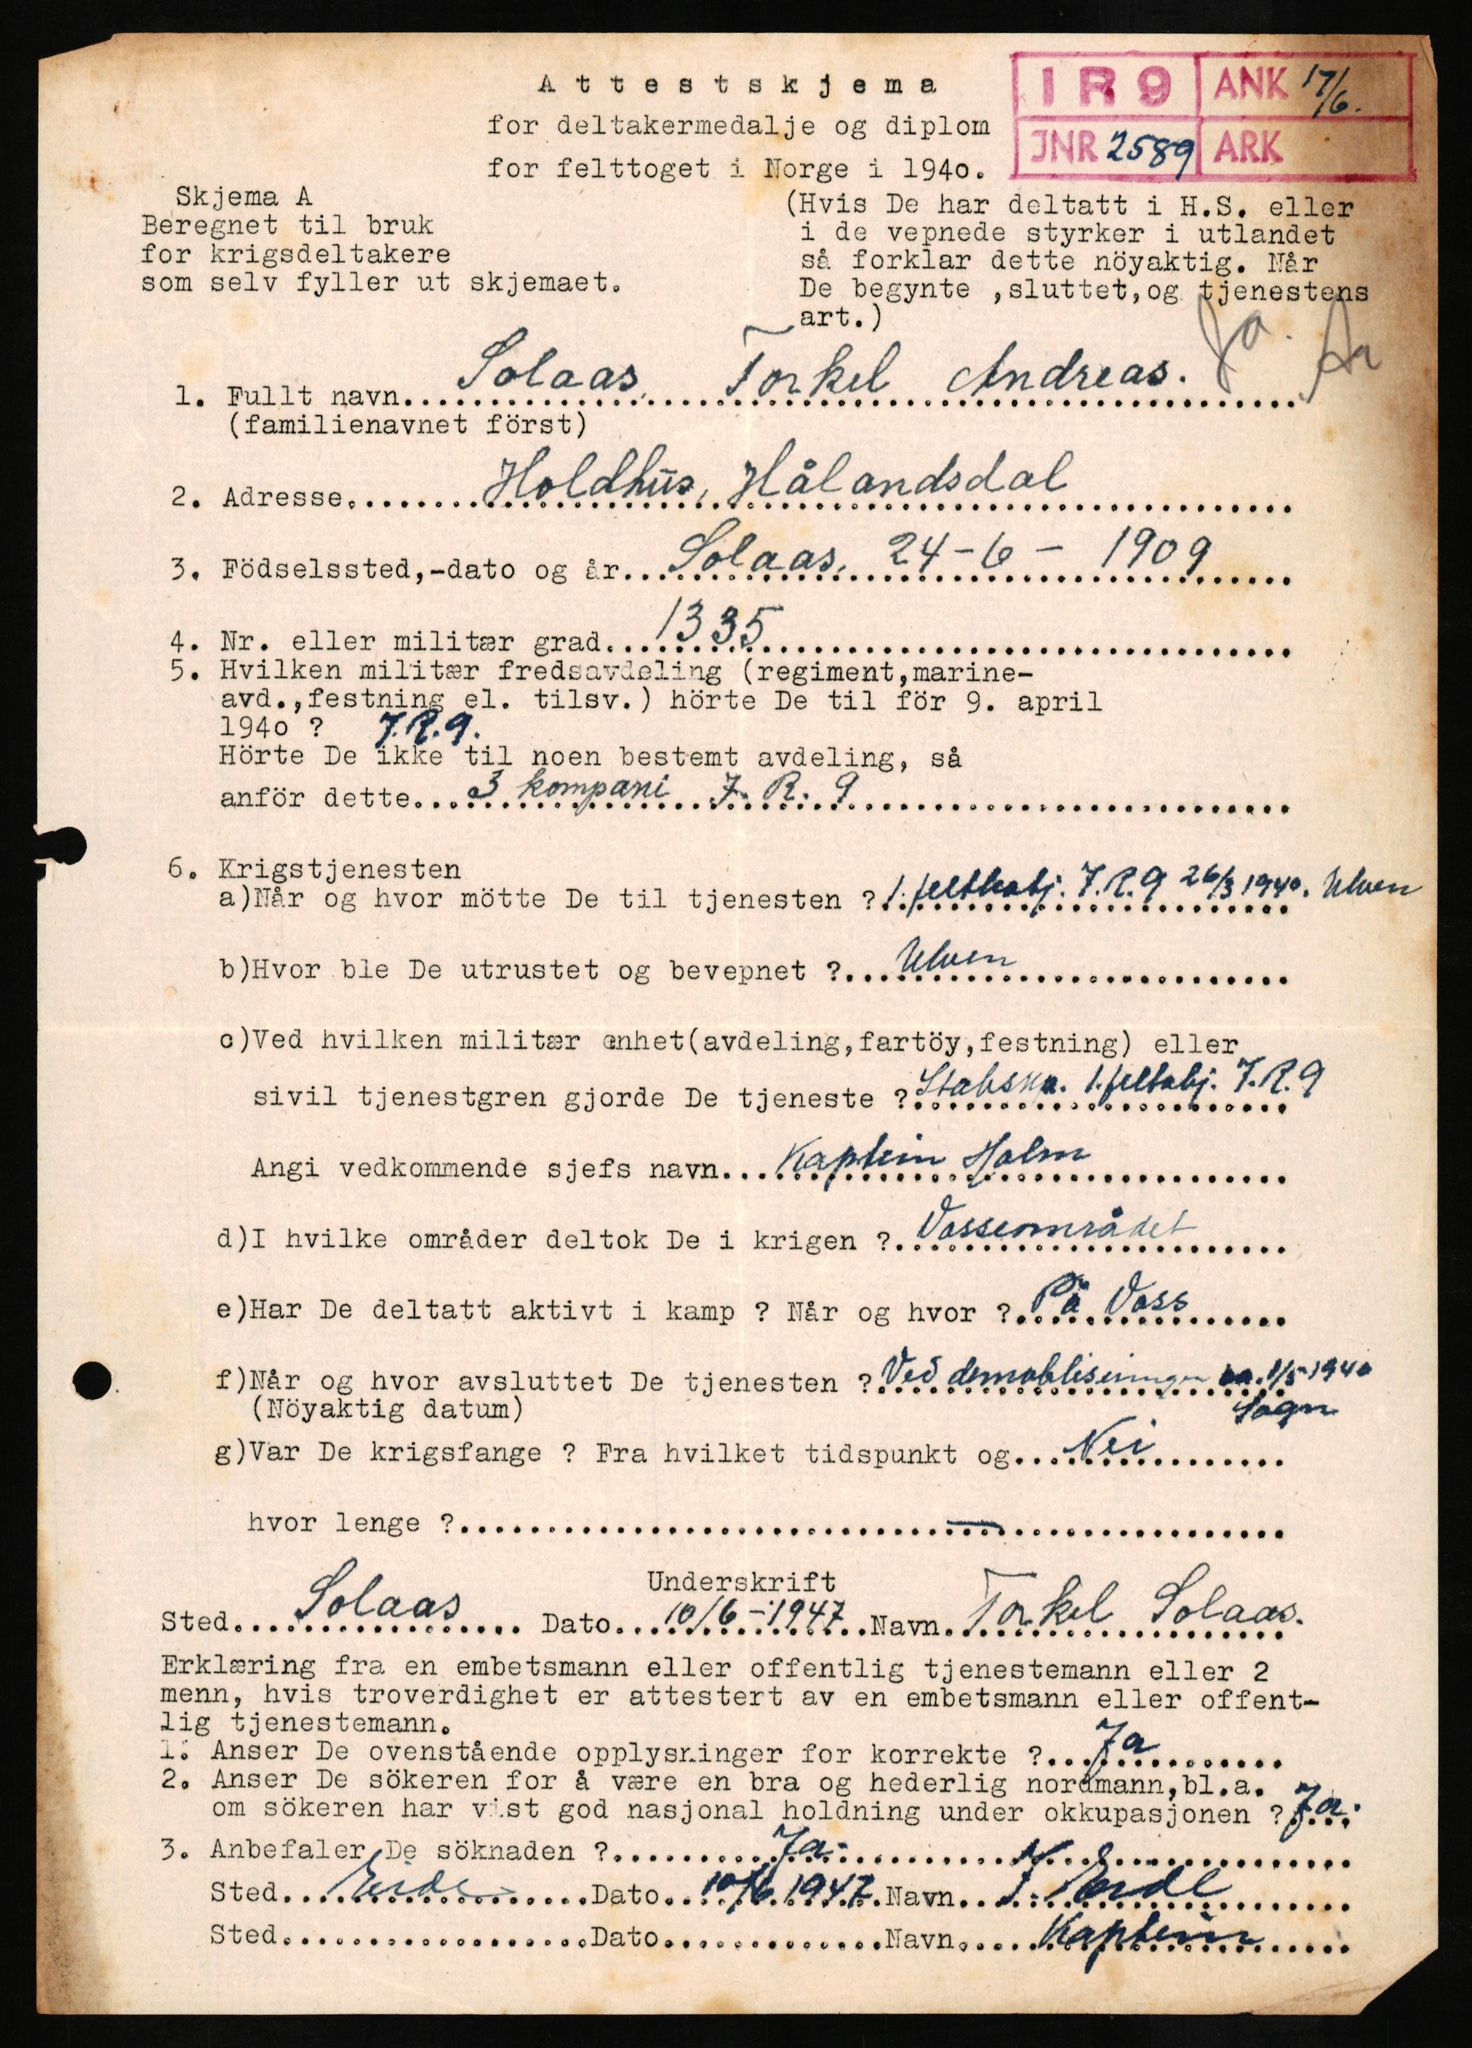 Attestskjema
for deltakermedalje og diplom
for felttoget i Norge i 1940.
IR9 ANK 17/6.
JNR 2589 ARK
Skjema A
Beregnet til bruk
for krigsdeltakere
som selv fyller ut skjemaet.
(Hvis De har deltatt i H.S. eller
i de vepnede styrker i utlandet
så forklar dette nöyaktig. Når
De begynte ,sluttet,og tjenestens
art.)
1. Fullt navn Solaas, Torkel Andreas.
(familienavnet först)
2. Adresse. Holdhus, Hålandsdal
3. Födselssted,-dato og år. Solaas, 24-6- 1909
4. Nr. eller militær grad. 1335
5. Hvilken militær fredsavdeling (regiment,marine-
avd.,festning el. tilsv.) hörte De til för 9. april
1940 ? J.R.9.
Hörte De ikke til noen bestemt avdeling, så
anför dette. 3 kompani J. R. 9
6. Krigstjenesten
a)Når og hvor mötte De til tjenesten ? 1. feltbatj. J.R.9 26/3 1940. Ulven
b)Hvor ble De utrustet og bevepnet ? Ulven
c)Ved hvilken militær enhet(avdeling,fartöy,festning) eller
sivil tjenestgren gjorde De tjeneste ? Stabskp. 1. feltbtj. J.R.9
Angi vedkommende sjefs navn. Kaptein Holm
d)I hvilke områder deltok De i krigen ? Vosseområdet
e)Har De deltatt aktivt i kamp ? Når og hvor ? På Voss
f)Når og hvor avsluttet De tjenesten ? Ved demobliseringen ca. 1/5-1940
(Nöyaktig datum) Sogn
g)Var De krigsfange ? Fra hvilket tidspunkt og Nei
hvor lenge ? —
Underskrift
Sted. Solaas Dato. 10/6-1947 Navn. Torkel Solaas.
Erklæring fra en embetsmann eller offentlig tjenestemann eller 2
menn, hvis troverdighet er attestert av en embetsmann eller offent-
lig tjenestemann.
1. Anser De ovenstående opplysninger for korrekte ? Ja
2. Anser De sökeren for å være en bra og hederlig nordmann,bl.a.
om sökeren har vist god nasjonal holdning under okkupasjonen ? Ja.
3. Anbefaler De söknaden ? Ja.
Sted. Eide Dato. 10/6 1947 Navn. Eide
Sted. Dato. Navn. Kaptein